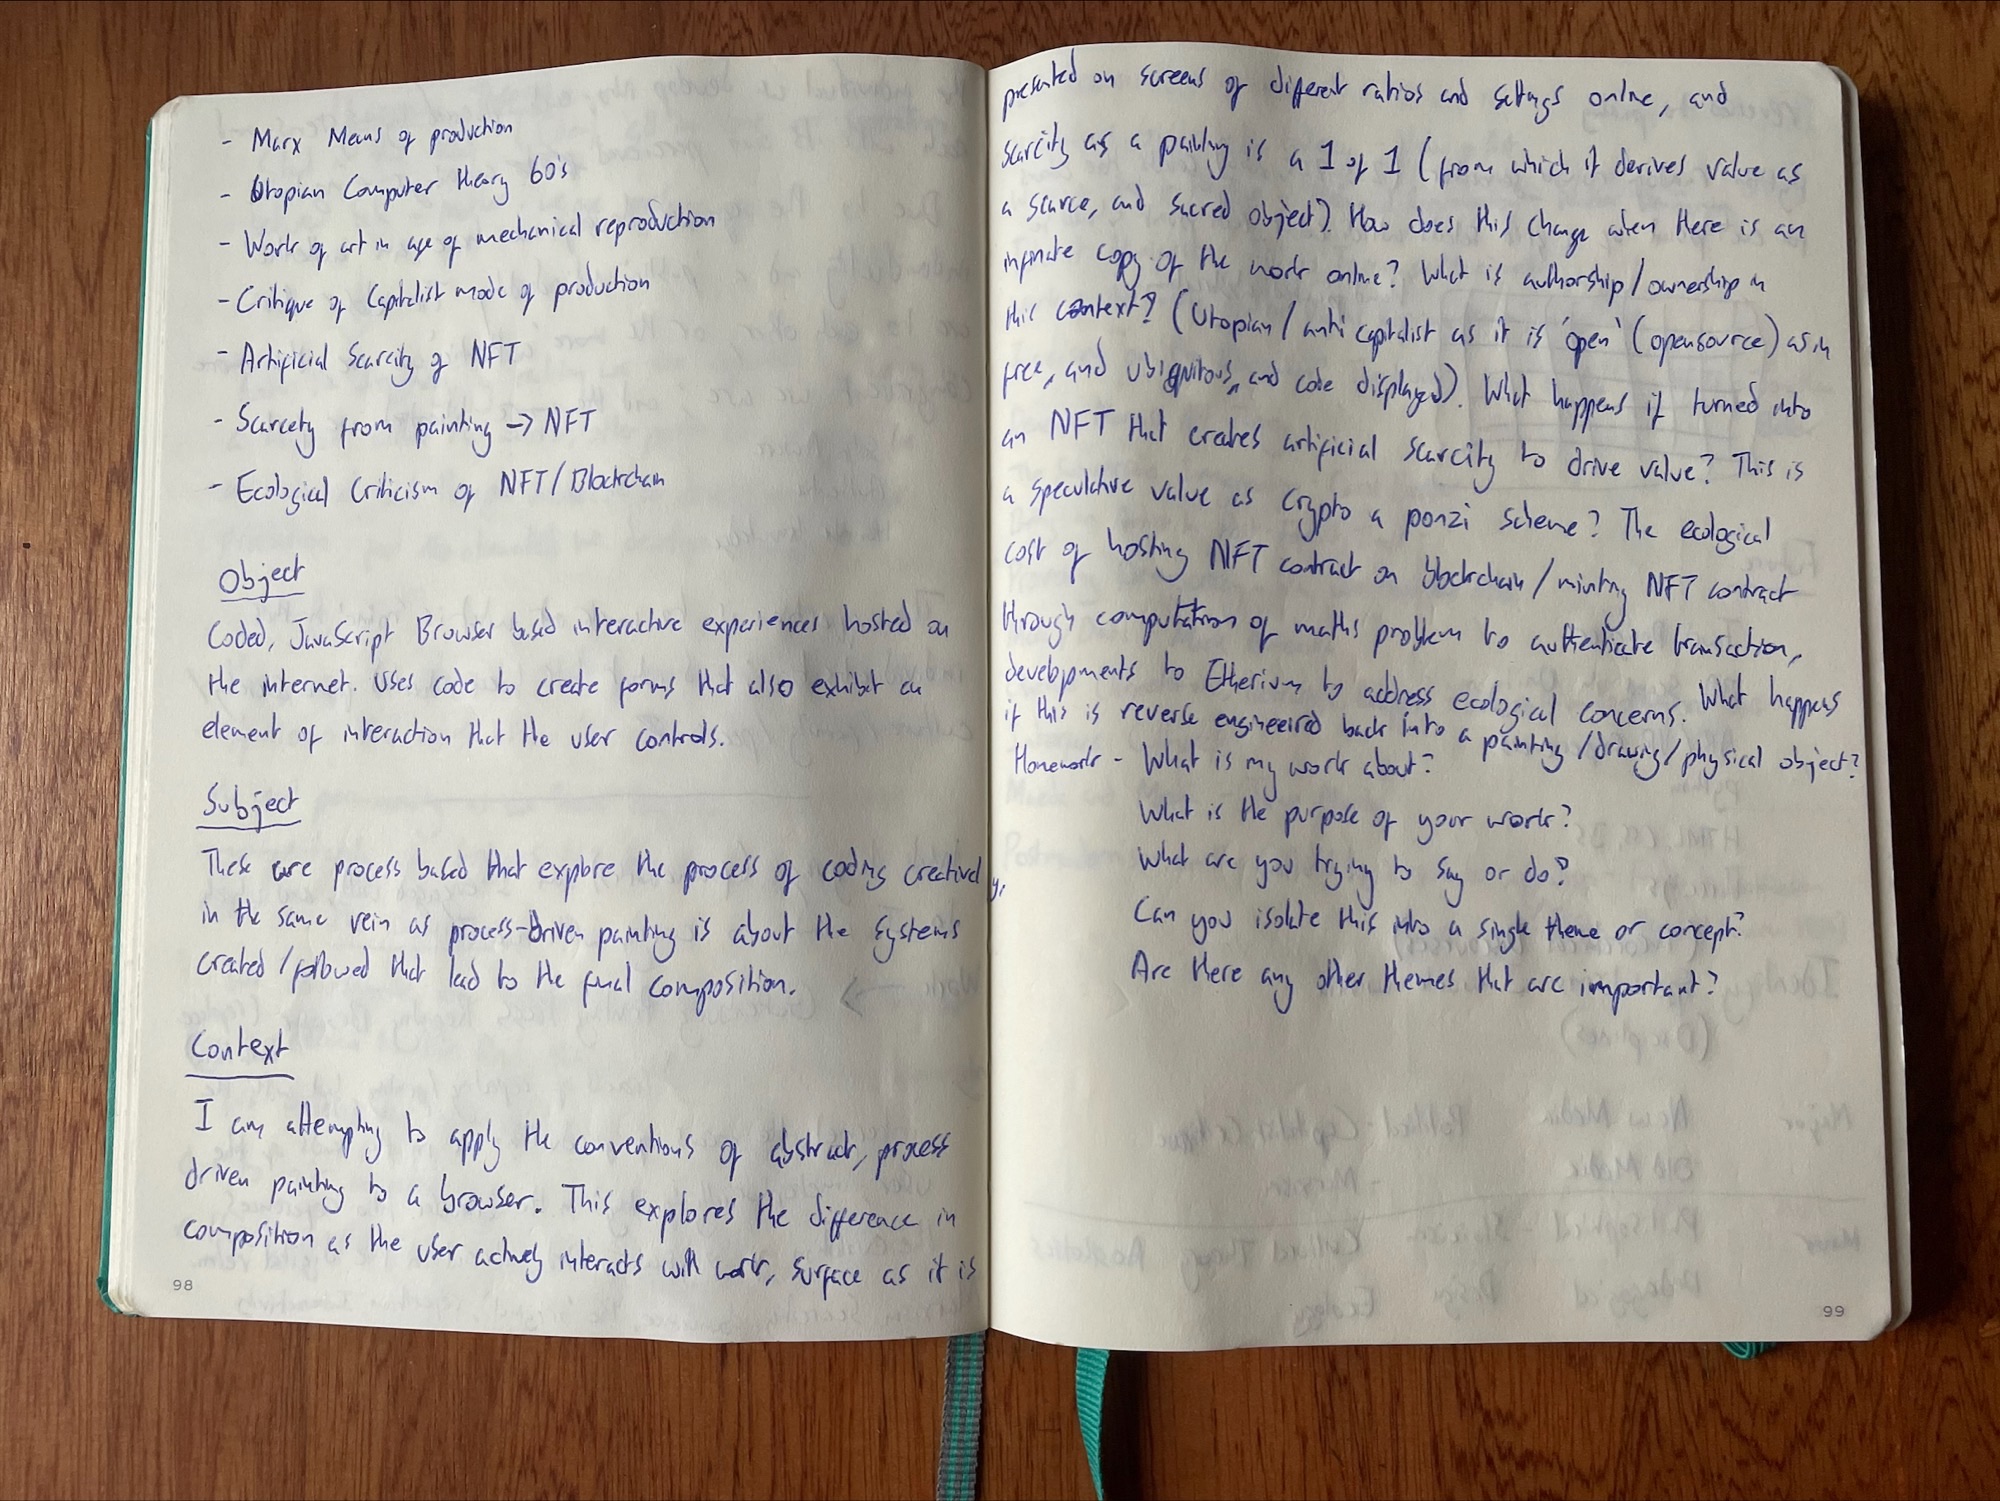 - Marx Means of production
- Utopian Computer theory 60's
- Work of art in age of mechanical reproduction
- Critique of Capitalist mode of production
- Artificial Scarcity of NFT
- Scarcety from painting -> NFT
- Ecological Criticism of NFT/Blockchain
Object
Coded, JavaScript Browser based interactive experiences hosted on
the internet. Uses code to create forms that also exhibit an
element of interaction that the user controls.
Subject
These are process based that explore the process of coding creatively,
in the same vein as process-driven painting is about the systems
created/followed that lead to the final composition.
Context
I am attempting to apply the conventions of abstract, process
driven painting to a browser. This explores the difference in
composition as the user actively interacts with work, surface as it is
98
presented on screens of different ratios and settings online, and
scarcity as a painting is a 1 of 1 (from which it derives value as
a scarce, and sacred object). How does this change when there is an
infinate copy of the work online? What is authorship/ownership in
this context? (Utopian/anti capitalist as it is 'open' (opensource) as in
free, and ubiquitous, and code displayed). What happens if turned into
an NFT that creates artificial scarcity to drive value? This is
a speculative value as crypto a ponzi scheme? The ecological
cost of hosting NFT contract on blockchain/minting NFT contract
through computation of maths problem to authenticate transaction,
developments to Etherium to address ecological concerns. What happens
if this is reverse engineeired back into a painting/drawing/physical object?
Homework - What is my work about?
What is the purpose of your work?
What are you trying to say or do?
Can you isolate this into a single theme or concept?
Are there any other themes that are important?
99